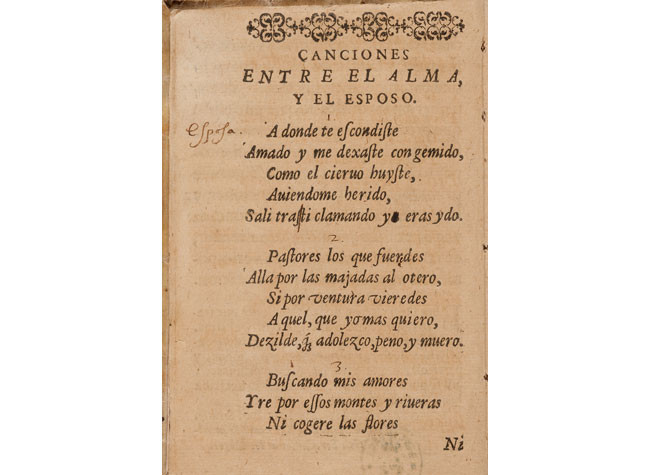 CANCIONES
ENTRE EL ALMA,
Y EL ESPOSO.
1
esposa.
A donde te escondiste
Amado y me dexaste con gemido,
Como el cieruo huyste,
Auiendome herido,
Sali tras ti clamando y eras ydo.
2.
Pastores los que fuerdes
Alla por las majadas al otero,
Si por ventura vieredes
A quel, que yo mas quiero,
Dezilde, q̃ adolezco, peno, y muero.
3.
Buscando mis amores
Yre por essos montes y riueras
Ni cogere las flores
Ni